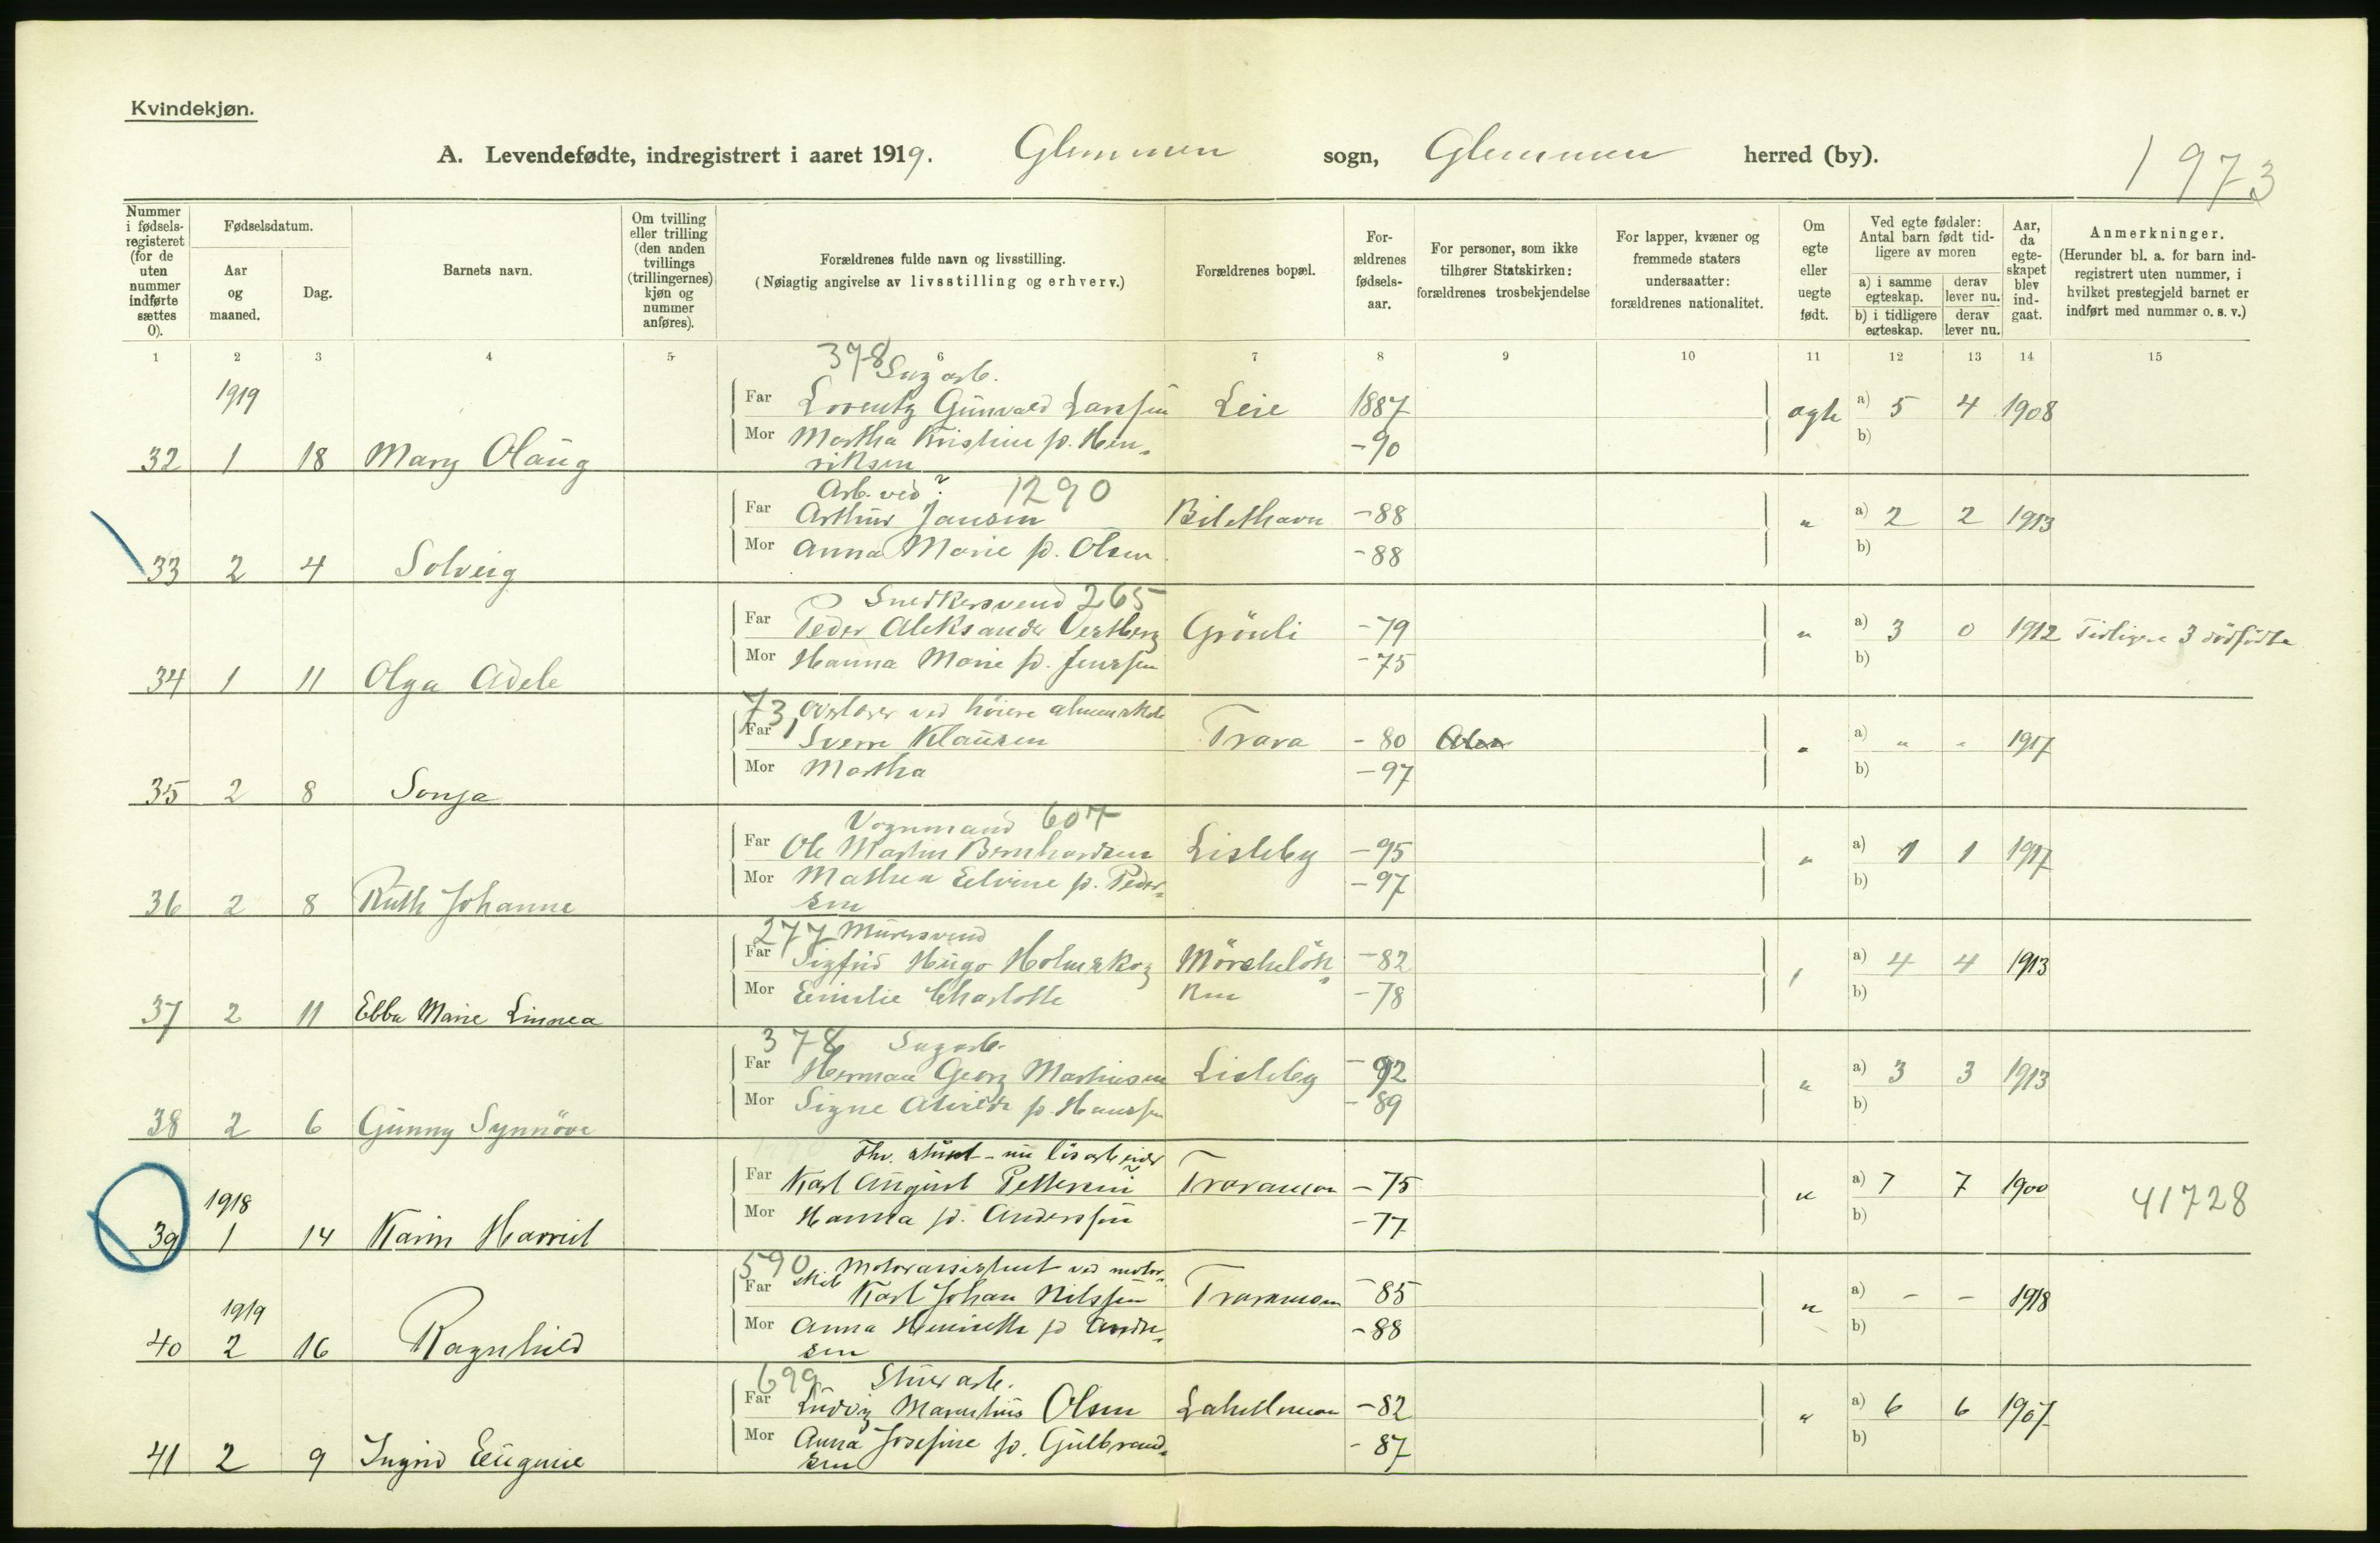 Kvindekjøn.
A. Levendefødte, indregistrert i aaret 1919. Glemmen sogn, Glemmen herred (by). 1973
Nummer i fødsels-registeret (for de uten nummer indførte sættes 0).
Fødselsdatum.
Aar og maaned.
Dag.
Barnets navn.
Om tvilling eller trilling (den anden tvillings (trillingernes) kjøn og nummer anføres).
Forældrenes fulde navn og livsstilling.
(Nøiagtig angivelse av livsstilling og erhverv.)
Forældrenes bopæl.
For-ældrenes fødsels-aar.
For personer, som ikke tilhører Statskirken: forældrenes trosbekjendelse
For lapper, kvæner og fremmede staters undersaatter: forældrenes nationalitet.
Om egte eller uegte født.
Ved egte fødsler: Antal barn født tid-ligere av moren
a) i samme egteskap.
derav lever nu.
b) i tidligere egteskap.
derav lever nu.
Aar, da egte-skapet blev ind-gaat.
Anmerkninger.
(Herunder bl. a. for barn ind-registrert uten nummer, i hvilket prestegjeld barnet er indført med nummer o. s. v.)
1 2 3 4 5 6 7 8 9 10 11 12 13 14 15
378 Sagarb.
1919 Far Lorentz Gunvald Larssen Leie 1887 egte a) 5 4 1908
Mor Martha Kristine f. Hen- -90 b)
32 1 18 Mary Olaug riksen
Arb. ved? 1290
Far Arthur Jansen -88 " a) 2 2 1913
Mor Anna Marie f. Olsen -88 b)
33 2 4 Solveig
Snedkersvend 265
Far Peder Aleksander Grönli -79 " a) 3 0 1912 Tidligere 3 dödfödte
Mor Hanna Marie f. Jenssen -75 b)
34 1 11 Olga Adele
73 ved höiere almenskole
Far Sverre Klausen Trara -80 " a) " " 1917
Mor Martha -97 b)
35 2 8 Sonja
Vognmand 607
Far Ole Martin Bernhardsen Lisleby -95 " a) 1 1 1917
Mor Mathea Elvine f. Peder- -97 b)
36 2 8 Ruth Johanne sen
277 Murersvend
Far Sigfrid Hugo Holmskog -82 " a) 4 4 1913
Mor Emilie Charlotte -78 b)
37 2 11 Ebba Marie Linnea
378 Sagarb.
Far Herman Georg Mathiesen Lisleby -92 " a) 3 3 1913
Mor Signe f. Hanssen -89 b)
38 2 6 Gunny Synnöve
Far Karl August Pettersen Traramoen -75 " a) 7 7 1900 41728
1918 Mor Hanna f. Anderssen -77 b)
39 1 14 Karin Harriet
590 Motorassistent ved motor-
Far skib Karl Johan Nilssen Traramoen -85 " a) - - 1918
1919 Mor Anna Henriette f. Andre- -88 b)
40 2 16 Ragnhild sen
699 Stuerarb.
Far Ludvig Marentius Olsen -82 " a) 6 6 1907
Mor Anna Josefine f. Gulbrand- -87 b)
41 2 9 Ingrid Eugenie sen